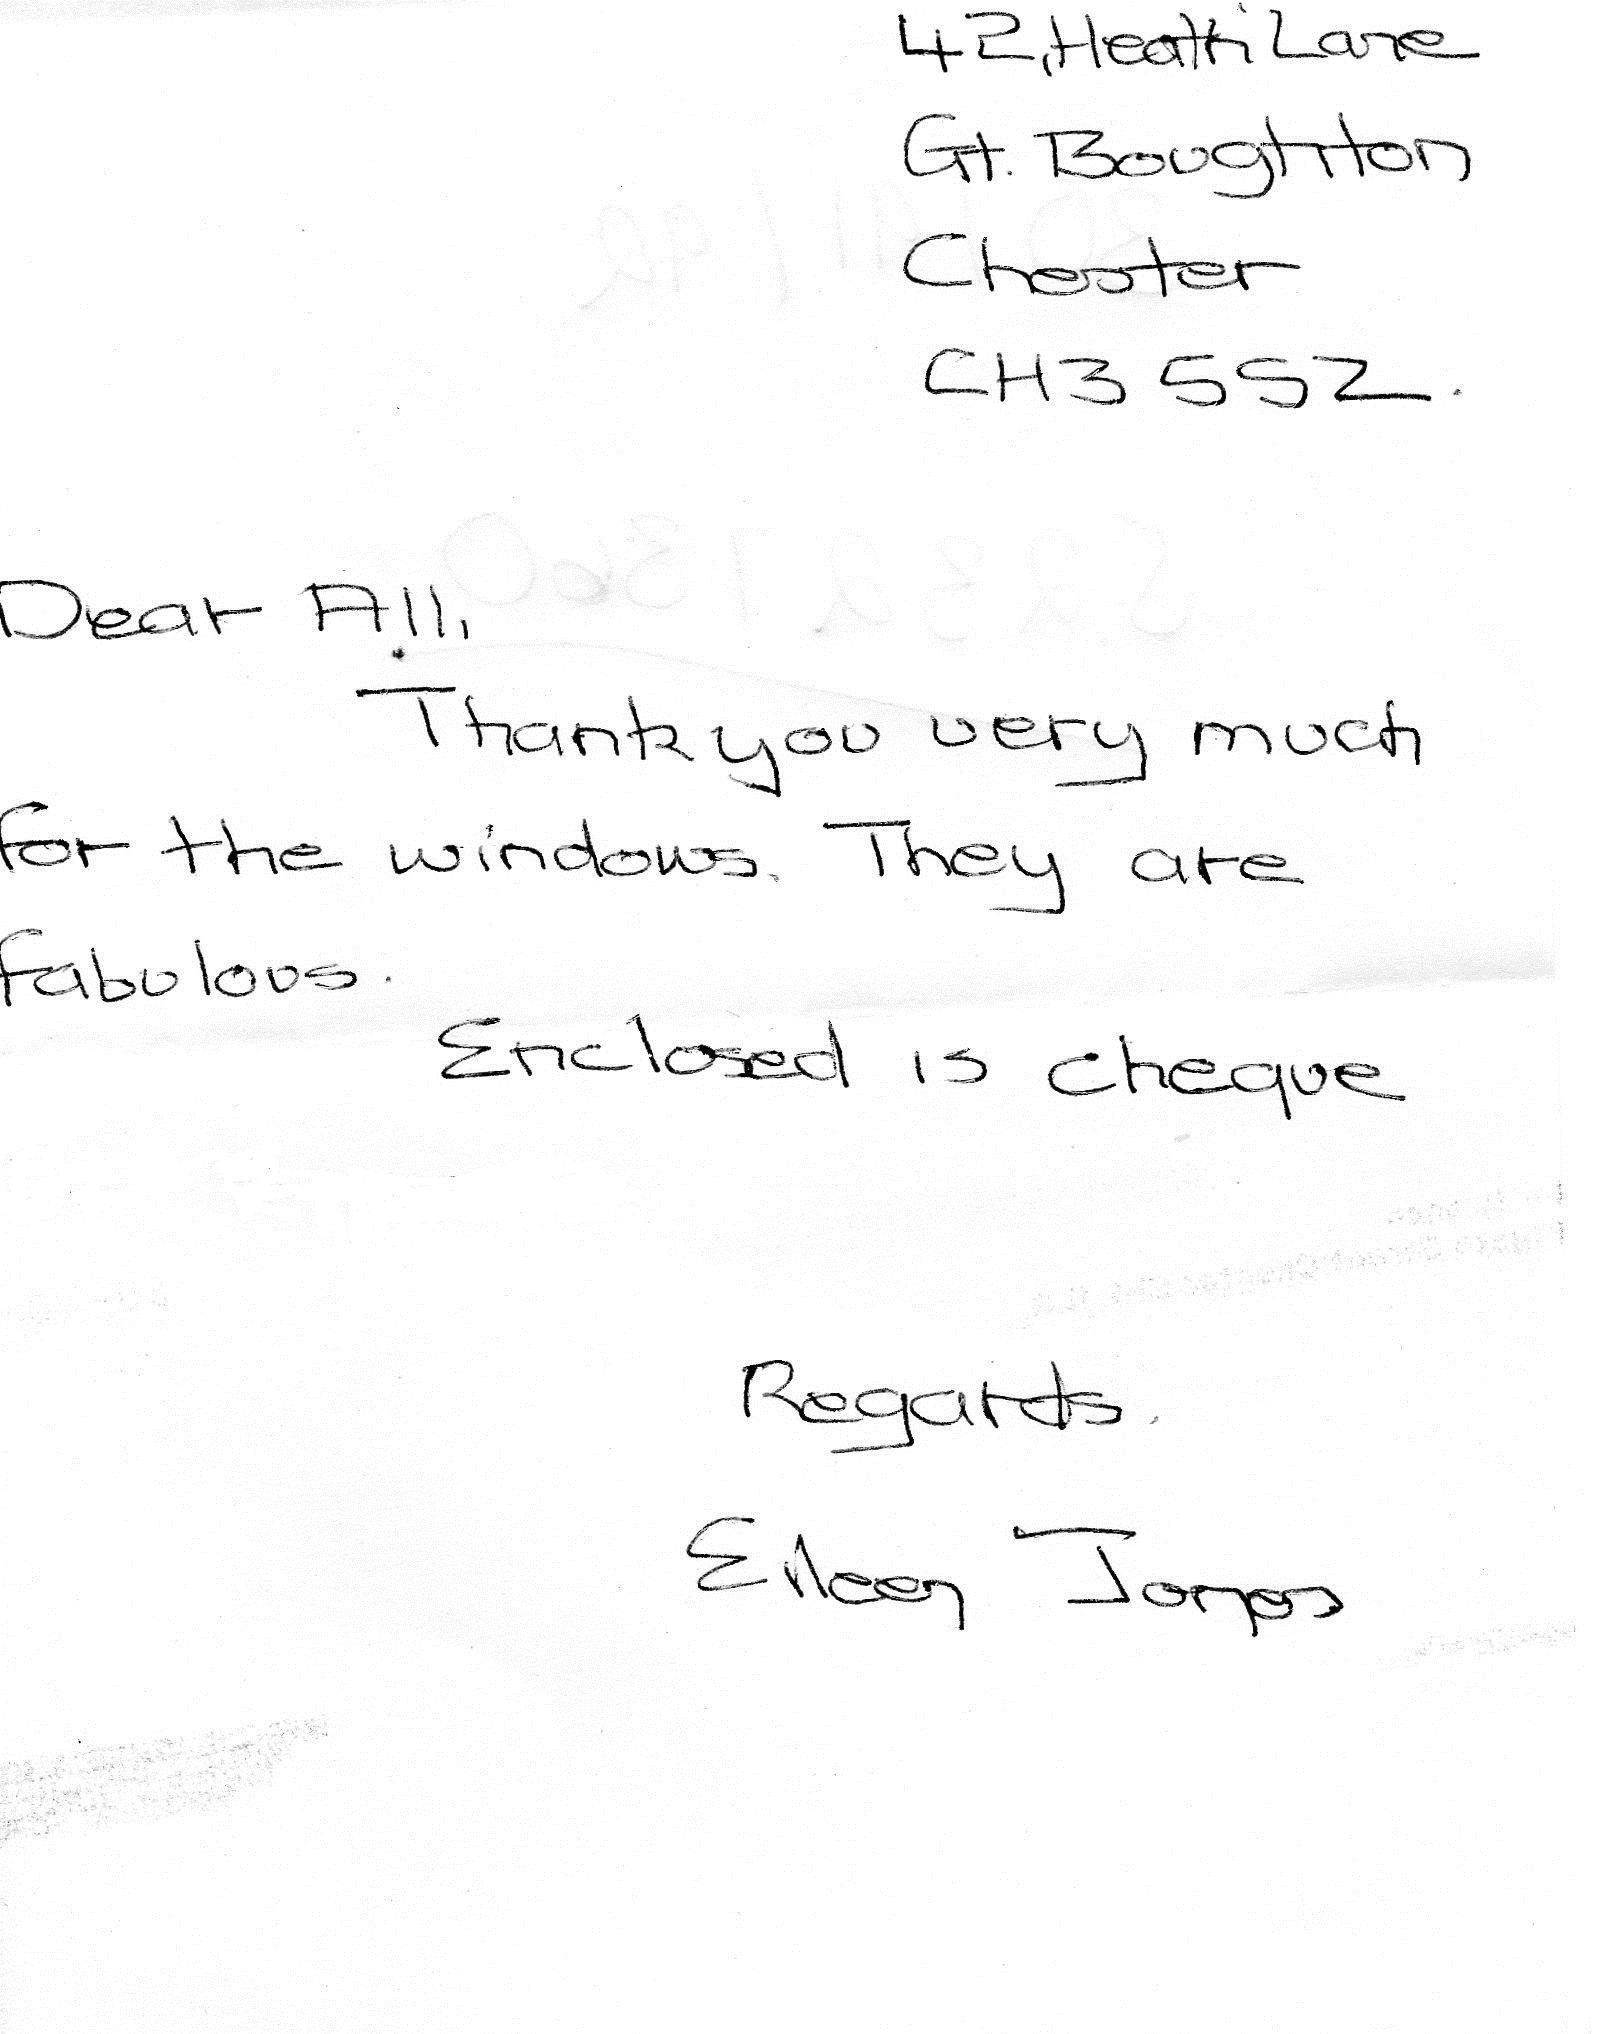 42, Heath Lane
Gt. Boughton
Chester
CH3 5SZ.
Dear All,
Thank you very much
for the windows. They are
fabulous.
Enclosed is cheque
Regards.
Eileen Jones